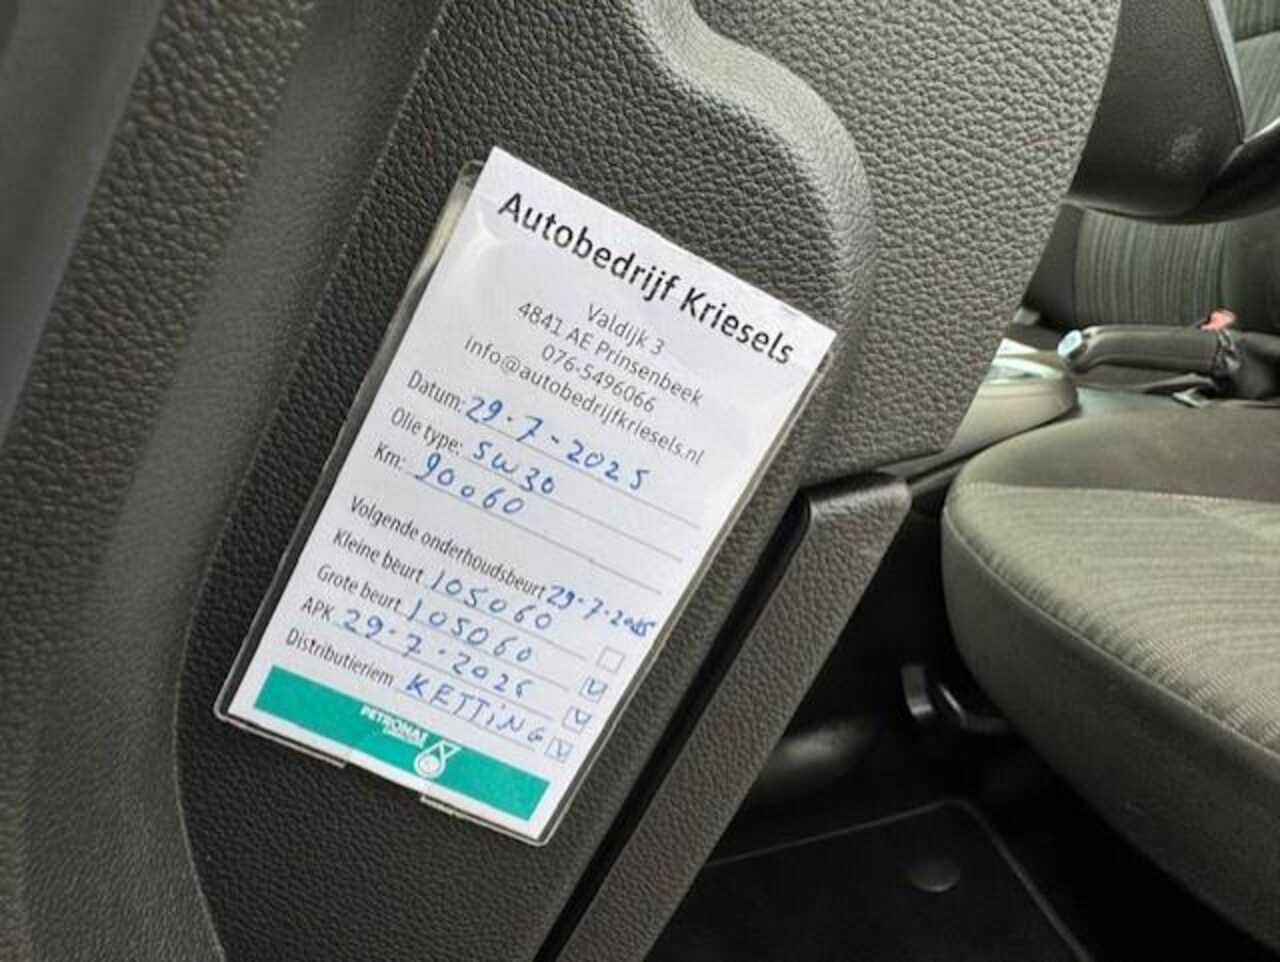 Autobedrijf Kriesels
Valdijk 3
4841 AE Prinsenbeek
076-5496066
info@autobedrijfkriesels.nl
Datum: 29-7-2025
Olie type: 5W30
Km: 90060
Volgende onderhoudsbeurt 29-7-2025
Kleine beurt 105060
Grote beurt 105060
APK 29-7-2026
Distributieriem KETTING
PETRONAS